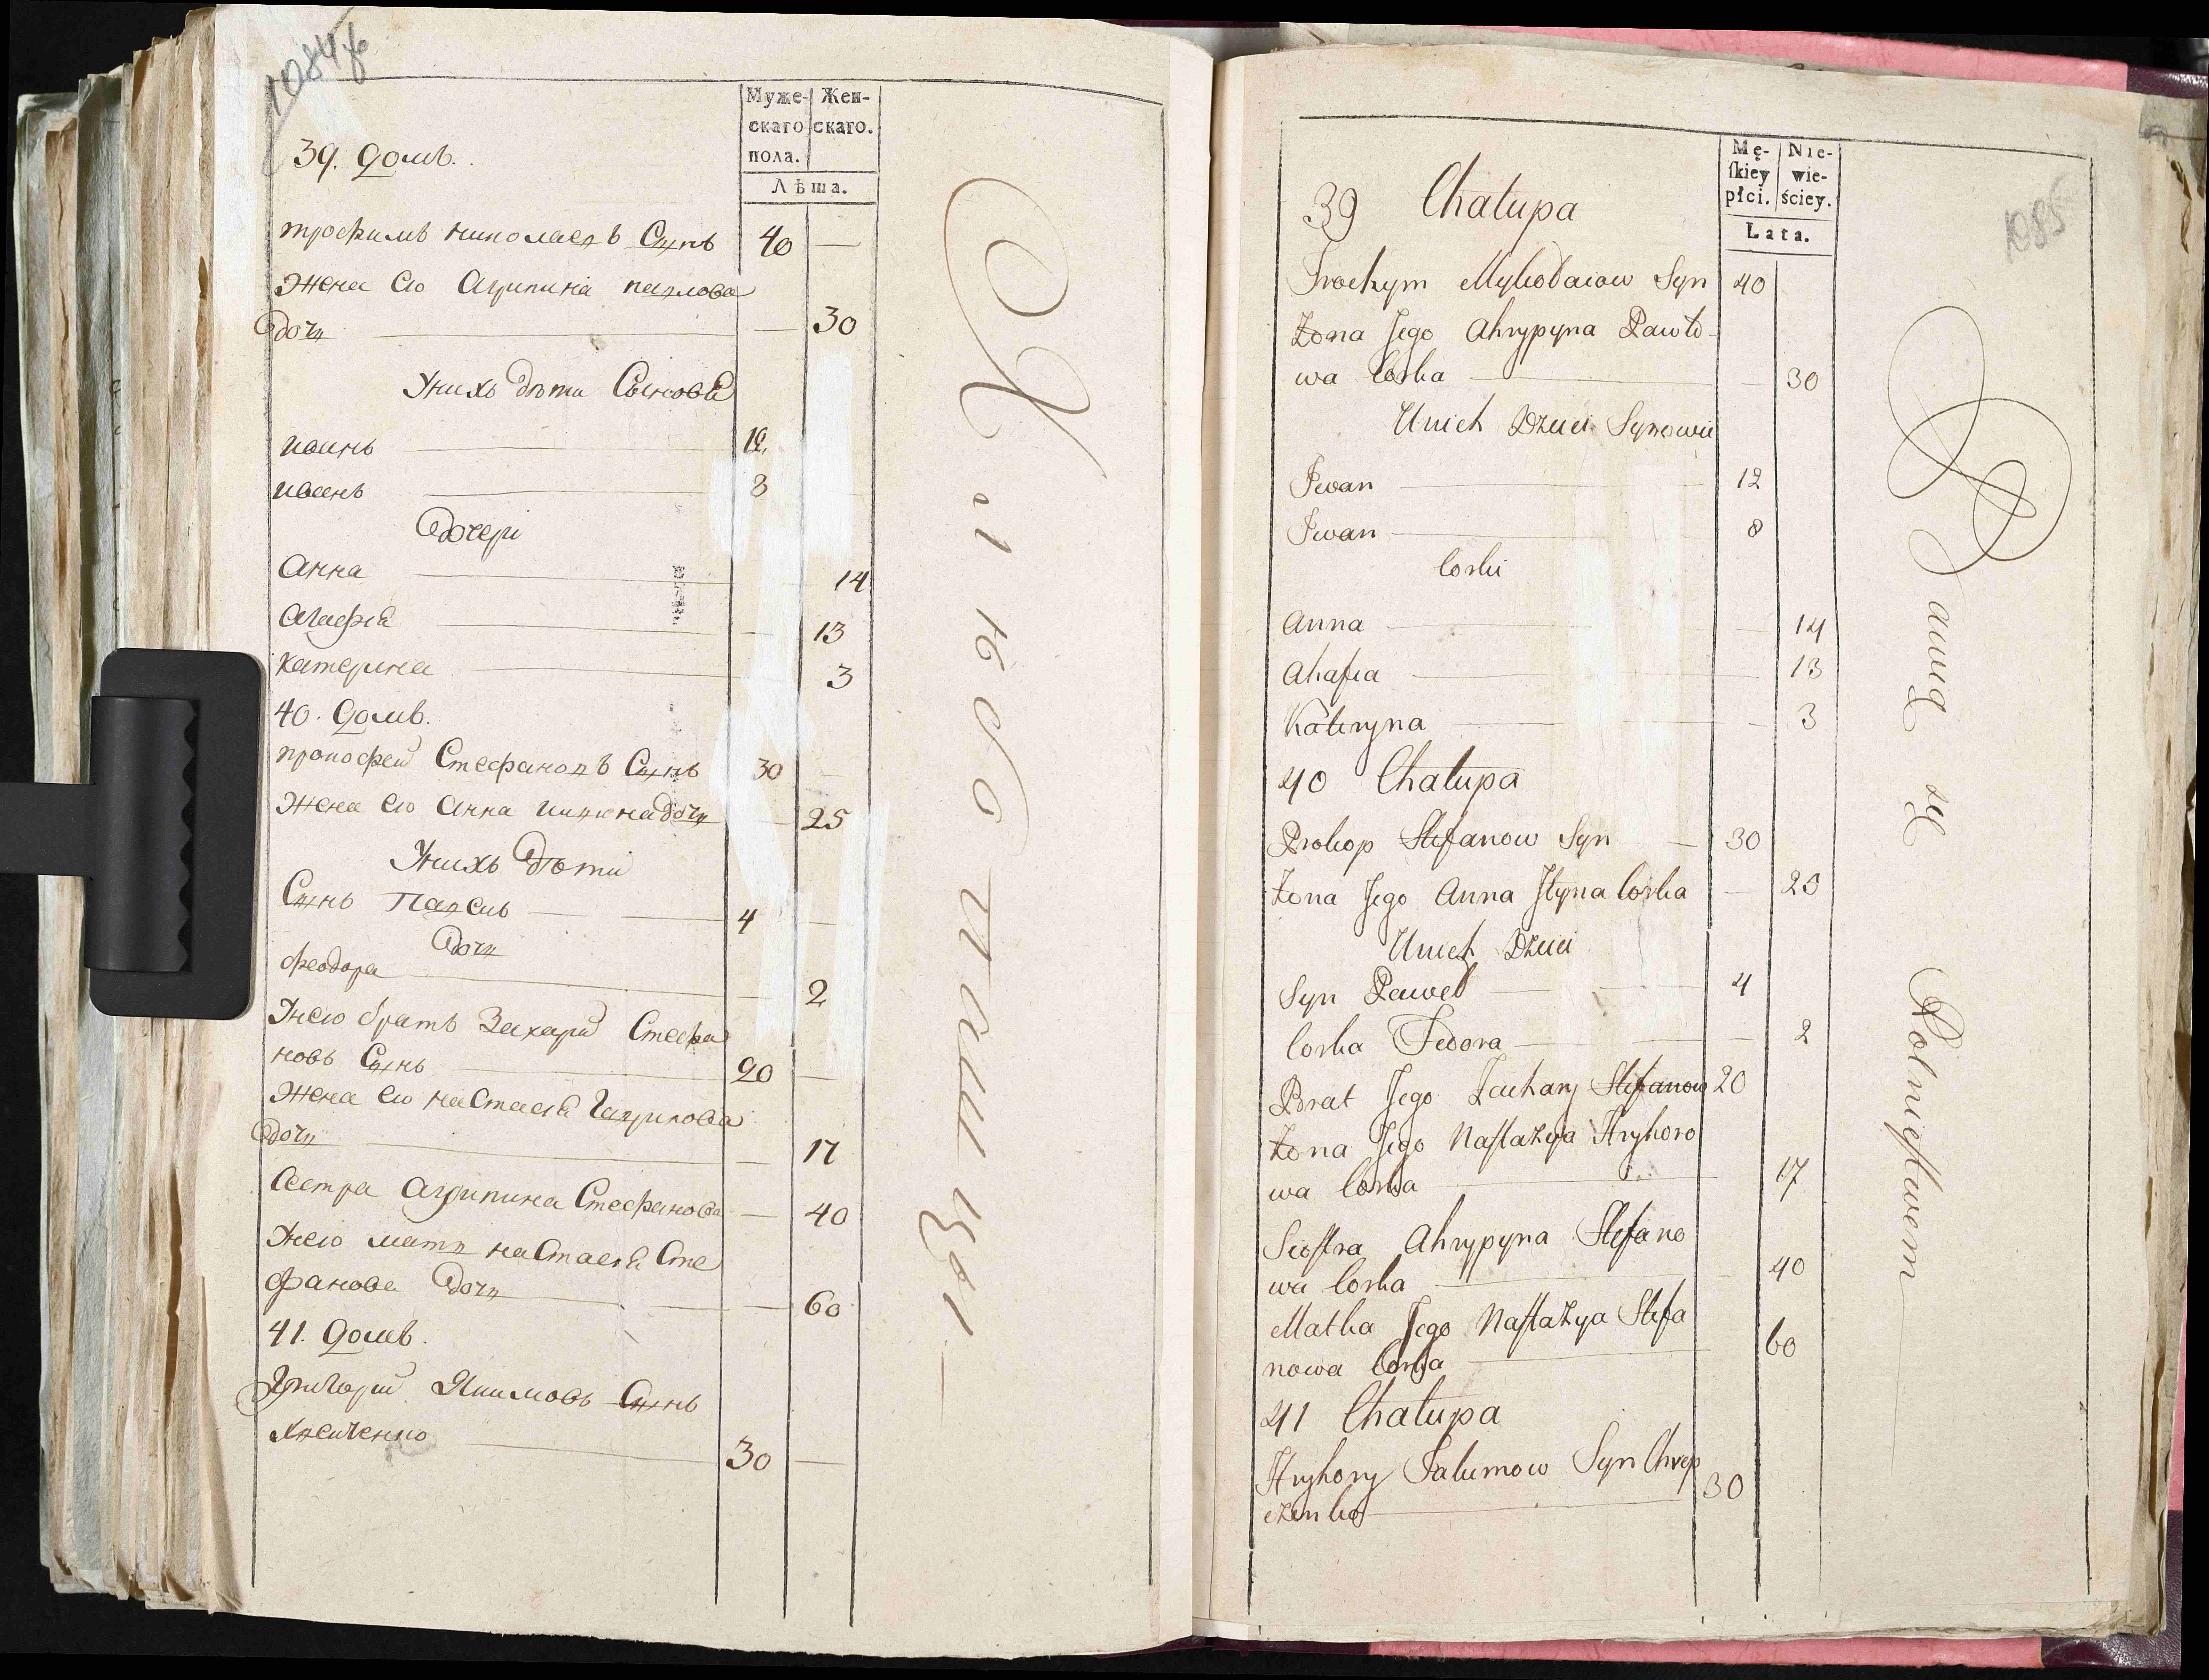 1084
Муже- Жен-
скаго скаго.
пола.
Лѣта.
39. домъ.
трофимъ николаевъ Сынъ 40 —
жена его Агрипина павлова
дочь — 30
У них дѣти Сыновѣ
иванъ 12
иванъ 8
дочери
Анна 14
Агафія — 13
катерина 3
40. домъ.
прокофей Стефановъ Сынъ 30 —
жена его Анна илина дочь — 25
У них дѣти
Сынъ Павелъ — 4 —
дочь
феодора — 2
У него братъ Захарій Стефа
новъ Сынъ 20 —
жена его настасія
дочь — 17
Сестра Агрипина Стефанова — 40
У него мать настасія Сте
фанова дочь — 60
41. домъ.
Григорій Якимовъ Сынъ
30 —
1085
Mę- Nie-
skiey wie-
płci. ściey.
Lata.
39 Chałupa
Trochym Mykołaiow Syn 40
Żona Jego Ahrypyna Pawło-
wa Corka — 30
U nich Dzieci Synowie
Iwan — 12
Iwan — 8
Corki
Anna — 14
Ahafia — 13
Kateryna — 3
40 Chałupa
Prokop Stefanow Syn — 30
Żona Jego Anna Ilyna Corka — 25
U nich Dzieci
Syn Paweł — 4
Corka Fedora — 2
Brat Jego Zachary Stefanow 20
Żona Jego Nastazya Hryhoro
wa Corka — 17
Siostra Ahrypyna Stefano
wa Corka — 40
Matka Jego Nastazya Stefa
nowa Corka — 60
41 Chałupa
Hryhory Jakimow Syn Chrep
czenko — 30